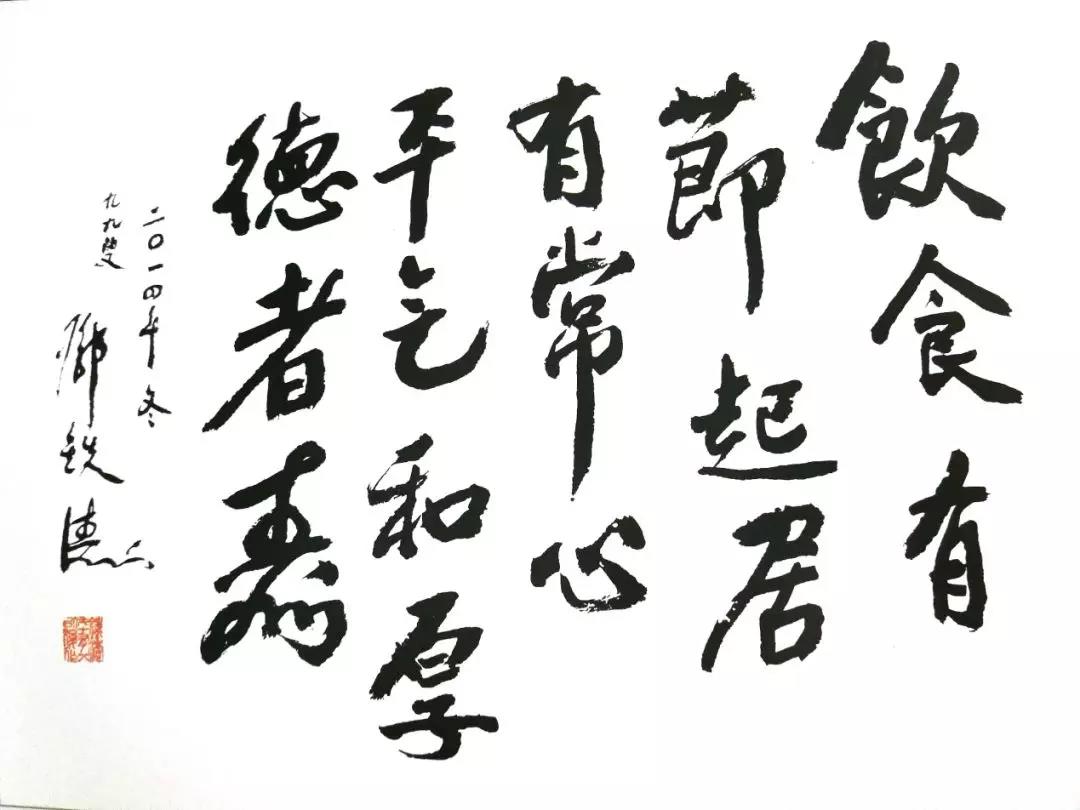 飲食有
節起居
有常心
平气和厚
德者壽
二〇一四年冬
九九叟 鄧鉄濤